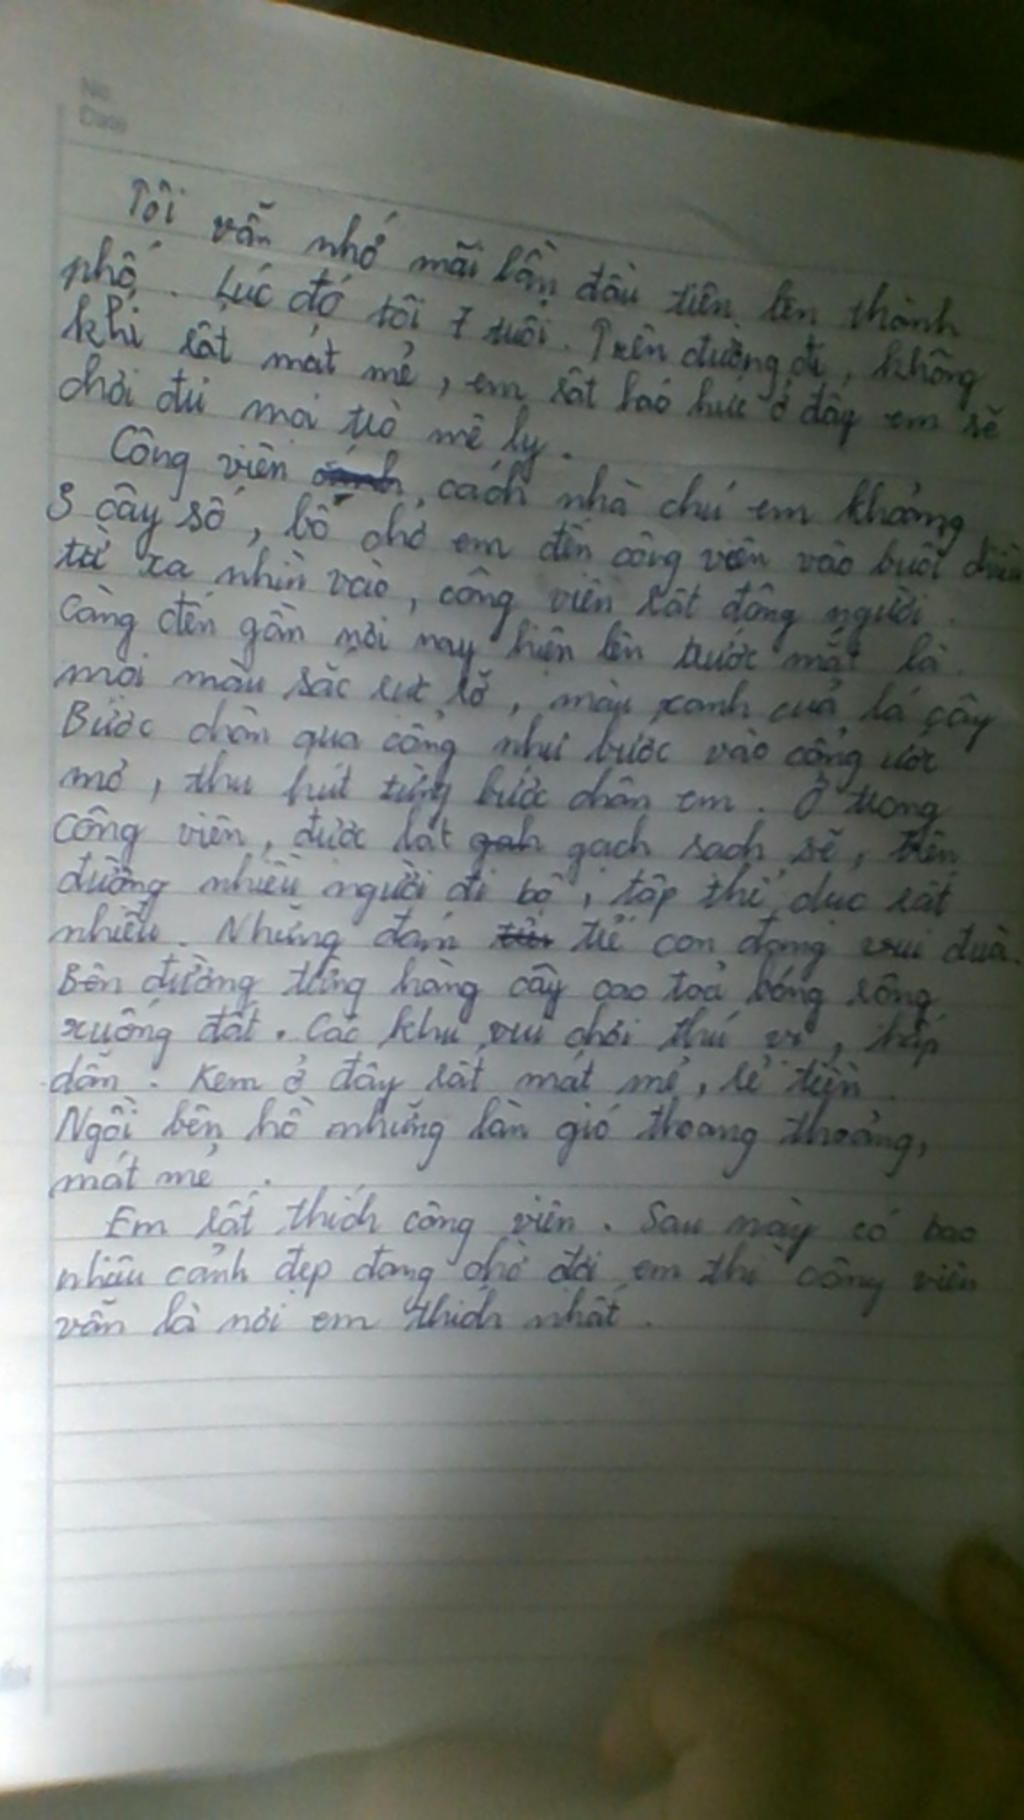 No.
Date
Tôi vẫn nhớ mãi lần đầu tiên lên thành
phố. Lúc đó tôi 7 tuổi. Trên đường đi, không
khí rất mát mẻ, em rất háo hức ở đây em sẽ
chơi đủ mọi trò mê ly.
Công viên cách nhà chú em khoảng
3 cây số, bố chở em đến công viên vào buổi chiều
từ xa nhìn vào, công viên rất đông người.
Càng đến gần nơi này hiện lên trước mắt là
mọi màu sắc rực rỡ, màu xanh của lá cây
Bước chân qua cổng như bước vào cổng ước
mơ, thu hút từng bước chân em. Ở trong
công viên, được lát gạch sạch sẽ, trên
đường nhiều người đi bộ, tập thể dục rất
nhiều. Những đám trẻ con đang vui đùa.
Bên đường từng hàng cây cao toả bóng rông
xuống đất. Các khu vui chơi thú vị, hấp
dẫn. Kem ở đây rất mát mẻ, rẻ tiền.
Ngồi bên hồ những làn gió thoang thoảng,
mát mẻ.
Em rất thích công viên. Sau này có bao
nhiêu cảnh đẹp đang chờ đợi em thì công viên
vẫn là nơi em thích nhất.